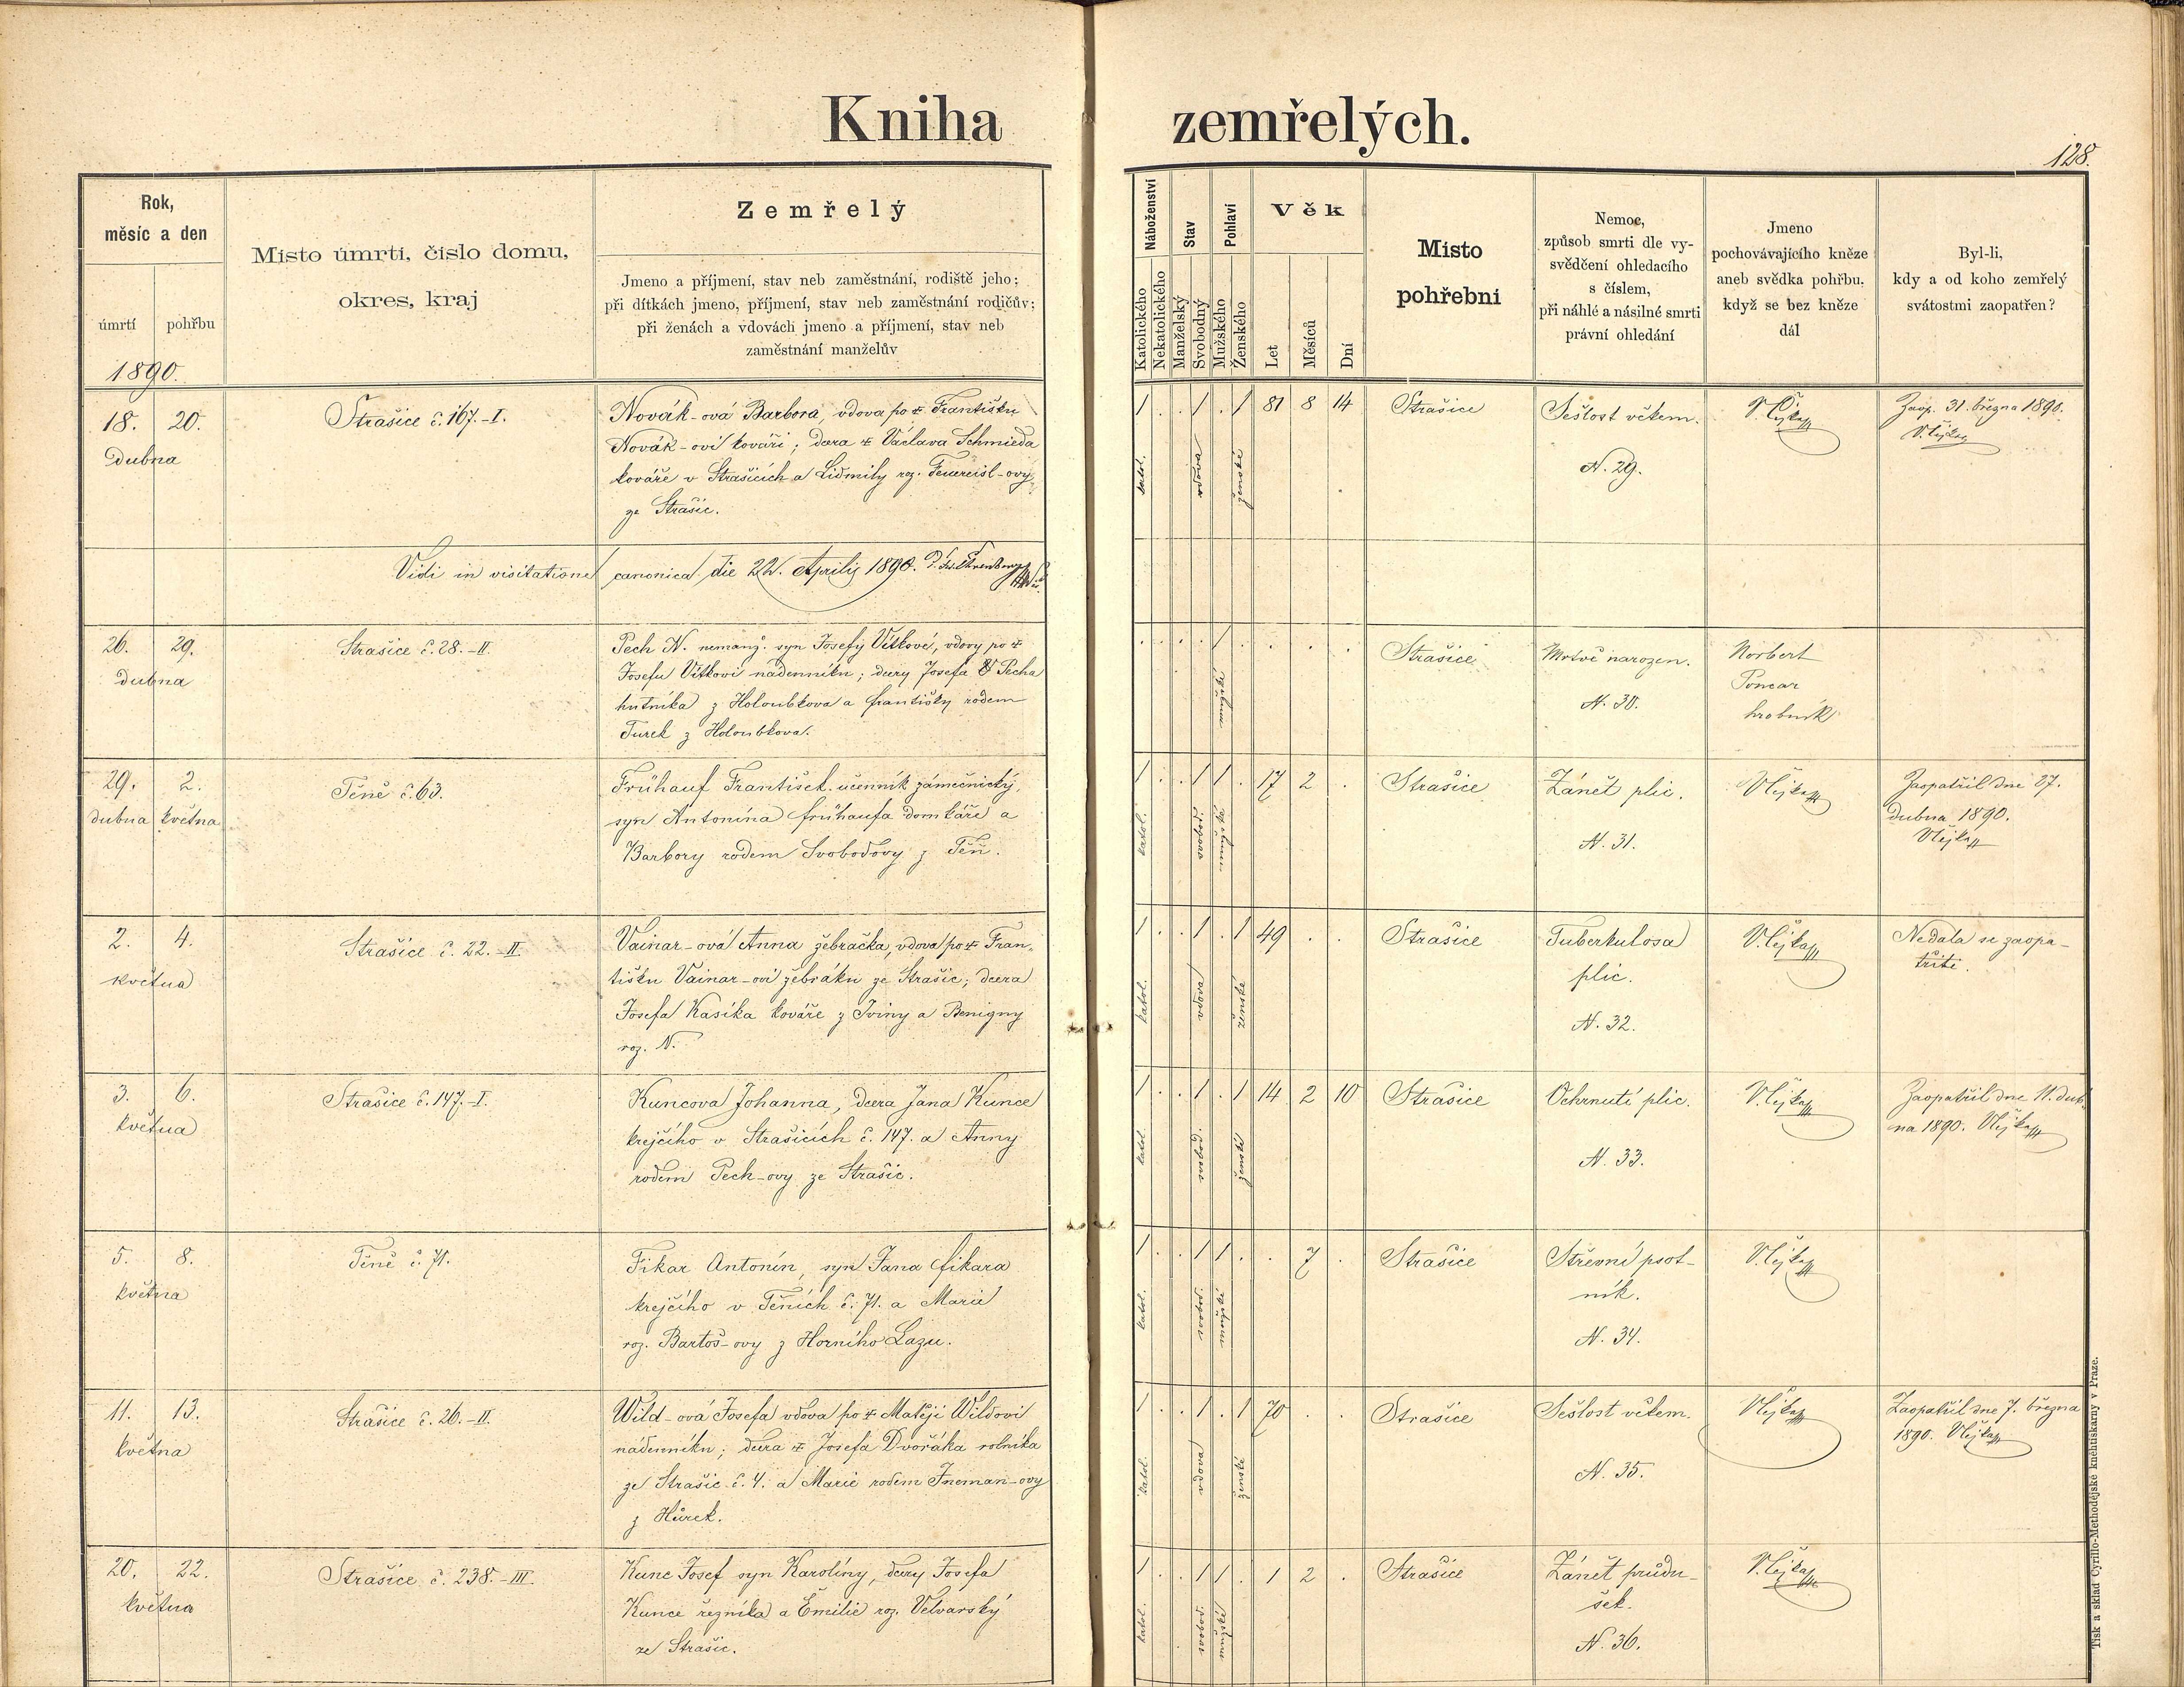 Kniha zemřelých.
128.
Rok,
měsíc a den
úmrtí pohřbu
1890.
Misto úmrti, čislo domu,
okres, kraj
Zemřelý
Jmeno a příjmení, stav neb zaměstnání, rodiště jeho;
při dítkách jmeno, příjmení, stav neb zaměstnání rodičův;
při ženách a vdovách jmeno a příjmení, stav neb
zaměstnání manželův
Náboženství
Katolického
Nekatolického
Stav
Manželský
Svobodný
Pohlaví
Mužského
Ženského
Věk
Let
Měsíců
Dní
Misto
pohřebni
Nemoc,
způsob smrti dle vy-
svědčení ohledacího
s číslem,
při náhlé a násilné smrti
právní ohledání
Jmeno
pochovávajícího kněze
aneb svědka pohřbu.
když se bez kněze
dál
Byl-li,
kdy a od koho zemřelý
svátostmi zaopatřen?
18. 20.
dubna
Strašice č. 167.-I.
Novák-ová Barbora, vdova po † Františku
Novák-ovi kováři; dcera † Václava Schmieda
kováře v Strašicích a Lidmily roz. Feuereisl-ovy
ze Strašic.
1 . . 1 . 1 81 8 14
katol. vdova ženské
Strašice
Sešlost věkem.
N. 29.
V. Čejka
Zaop. 31. března 1890.
V. Čejka
Vidi in visitatione canonica die 22. Aprilis 1890.
26. 29.
dubna
Strašice č. 28.-II.
Pech N. nemanž. syn Josefy Vítkové, vdovy po †
Josefu Vítkovi nádenníku; dcery Josefa Pecha
hutníka z Holoubkova a Františky rodem
Turek z Holoubkova.
. . . . 1 . . . .
mužské
Strašice
Mrtvě narozen.
N. 30.
Norbert
Poncar
hrobník
29. 2.
dubna května
Těně č. 63.
Frühauf František učenník zámečnický,
syn Antonína Frühaufa domkáře a
Barbory rodem Svobodovy z Těň.
1 . . 1 1 . 17 2 .
katol. svobod. mužské
Strašice
Zánět plic.
N. 31.
V. Čejka
Zaopatřil dne 27.
dubna 1890.
V. Čejka
2. 4.
května
Strašice č. 22.-II.
Vainar-ová Anna žebračka, vdova po † Fran-
tišku Vainar-ovi žebráku ze Strašic; dcera
Josefa Kasíka kováře z Iviny a Benigny
roz. N.
1 . . 1 . 1 49 . .
katol. vdova ženské
Strašice
Tuberkulosa
plic.
N. 32.
V. Čejka
Nedala se zaopa-
třiti.
3. 6.
května
Strašice č. 147.-I.
Kuncova Johanna, dcera Jana Kunce
krejčího v Strašicích č. 147. a Anny
rodem Pech-ovy ze Strašic.
1 . . 1 . 1 14 2 10
katol. svobod. ženské
Strašice
Ochrnutí plic.
N. 33.
V. Čejka
Zaopatřil dne 11. dub-
na 1890. V. Čejka
5. 8.
května
Těně č. 71.
Fikar Antonín, syn Jana Fikara
krejčího v Těních č. 71. a Marie
roz. Bartoš-ovy z Horního Lazu.
1 . . 1 1 . . 7 .
katol. svobod. mužské
Strašice
Střevní psot-
ník.
N. 34.
V. Čejka
11. 13.
května
Strašice č. 26.-II.
Wild-ová Josefa vdova po † Matěji Wildovi
nádenníku; dcera † Josefa Dvořáka rolníka
ze Strašic č. 4. a Marie rodem Ineman-ovy
z Hůrek.
1 . . 1 . 1 70 . .
katol. vdova ženské
Strašice
Sešlost věkem.
N. 35.
V. Čejka
Zaopatřil dne 7. března
1890. V. Čejka
20. 22.
května
Strašice č. 238.-III.
Kunc Josef syn Karolíny, dcery Josefa
Kunce řezníka a Emilie roz. Velvarský
ze Strašic.
1 . . 1 1 . 1 2 .
katol. svobod. mužské
Strašice
Zánět průdu-
šek.
N. 36.
V. Čejka
Tisk a sklad Cyrillo-Methodějské kněhtiskárny v Praze.